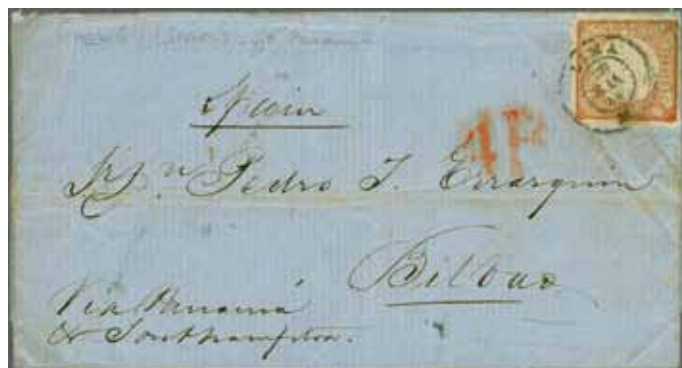 LIMA
Spain
4 Rs
Sr. Dn. Pedro J. Errarquin
Bilbao
Via Panamá
& Southampton.